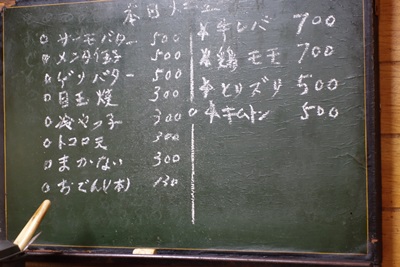 本日メニュー
○ サーモンバター 500
○ メンタイ餃子 500
○ ゲソバター 500
○ 目玉焼 300
○ 冷やっ子 300
○ トコロ天 300
○ まかない 300
○ おでん(1本) 130
牛レバ 700
鶏モモ 700
とりズリ 500
キムトン 500